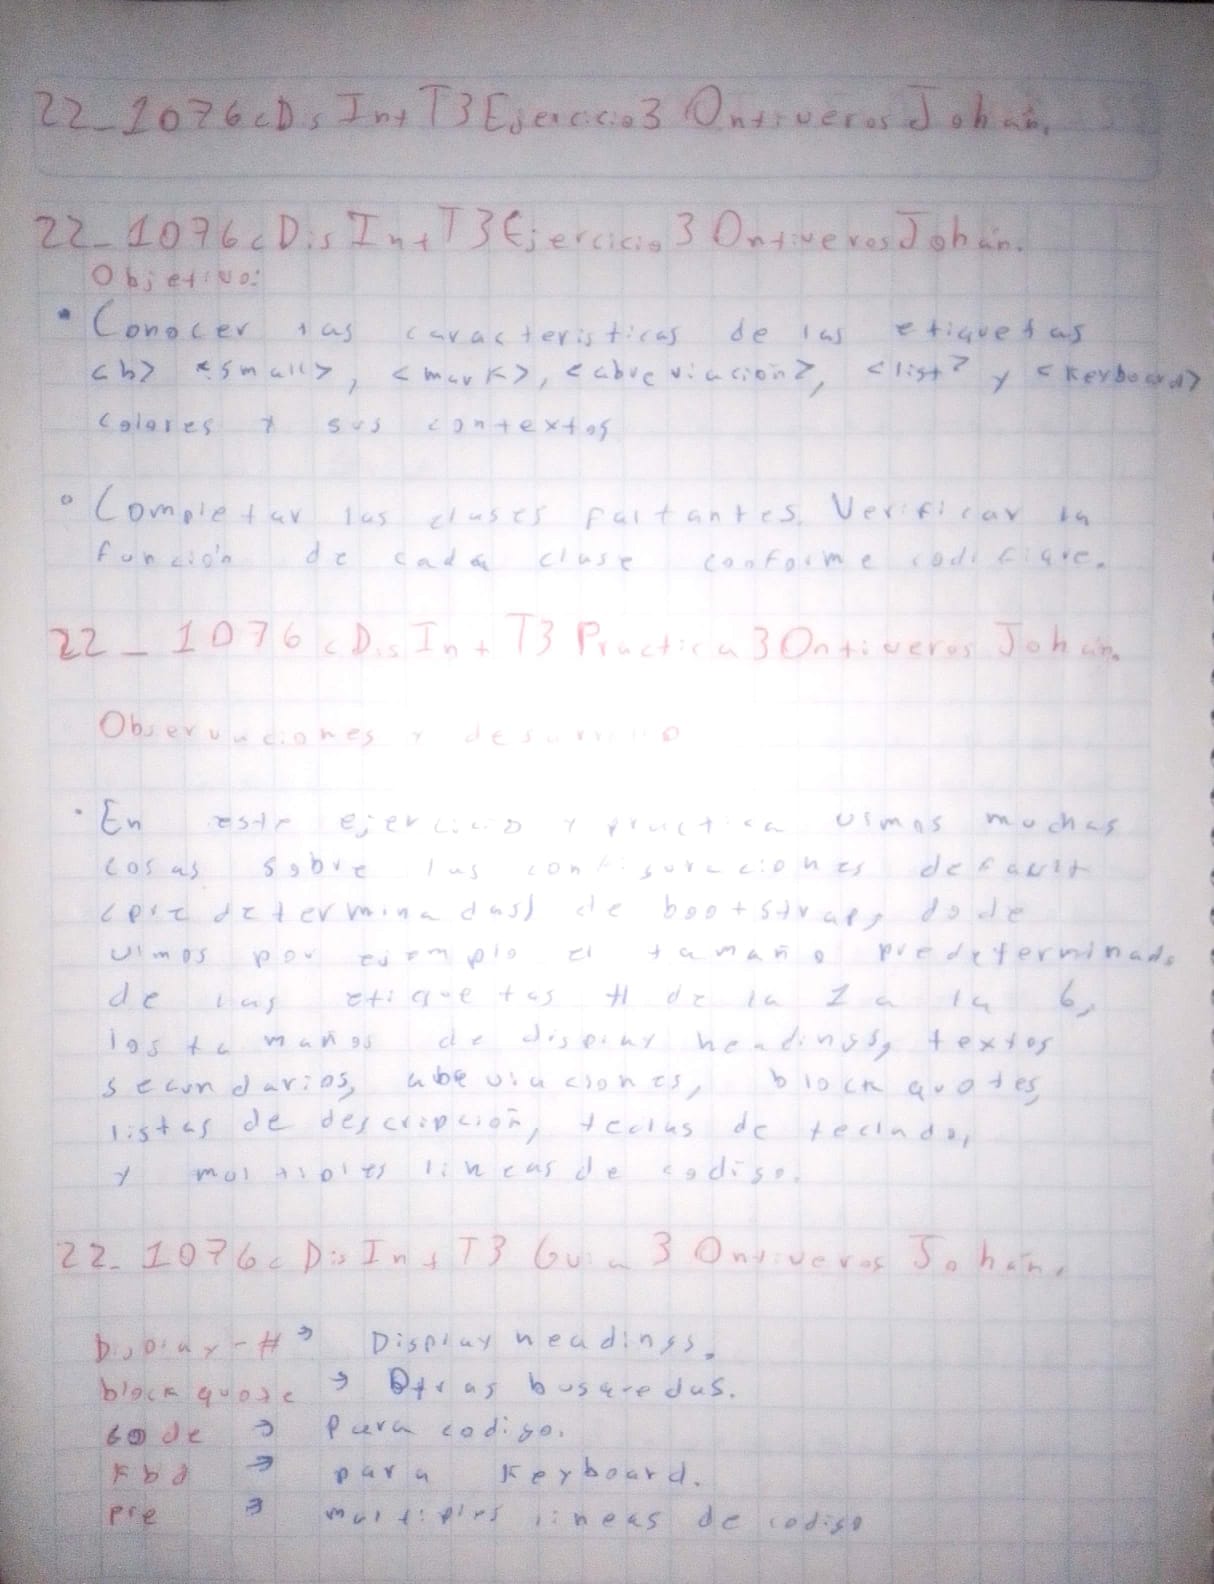 22_1076cDisIntT3Ejercicio3OntiverosJohán.
22_1076cDisIntT3Ejercicio3OntiverosJohán.
Objetivo:
• Conocer las caracteristicas de las etiquetas
<h> <small>, <mark>, <abreviación>, <list> y <keyboard>
colores y sus contextos
• Completar las clases faltantes. Verificar la
función de cada clase conforme codifique.
22_1076cDisIntT3Practica3OntiverosJohán.
Observaciones y desarrollo
• En este ejercicio y practica vimos muchas
cosas sobre las configuraciones default
(predeterminadas) de bootstrap, dode
vimos por ejemplo el tamaño predeterminado
de las etiquetas H de la 1 a la 6,
los tamaños de display headings, textos
secundarios, abeviaciones, blockquotes,
listas de descripción, teclas de teclado,
y multiples lineas de codigo.
22_1076cDisIntT3Guia3OntiverosJohán.
Display-# → Display headings.
blockquote → Otras busquedas.
code → Para codigo.
kbd → para keyboard.
pre → multiples lineas de codigo